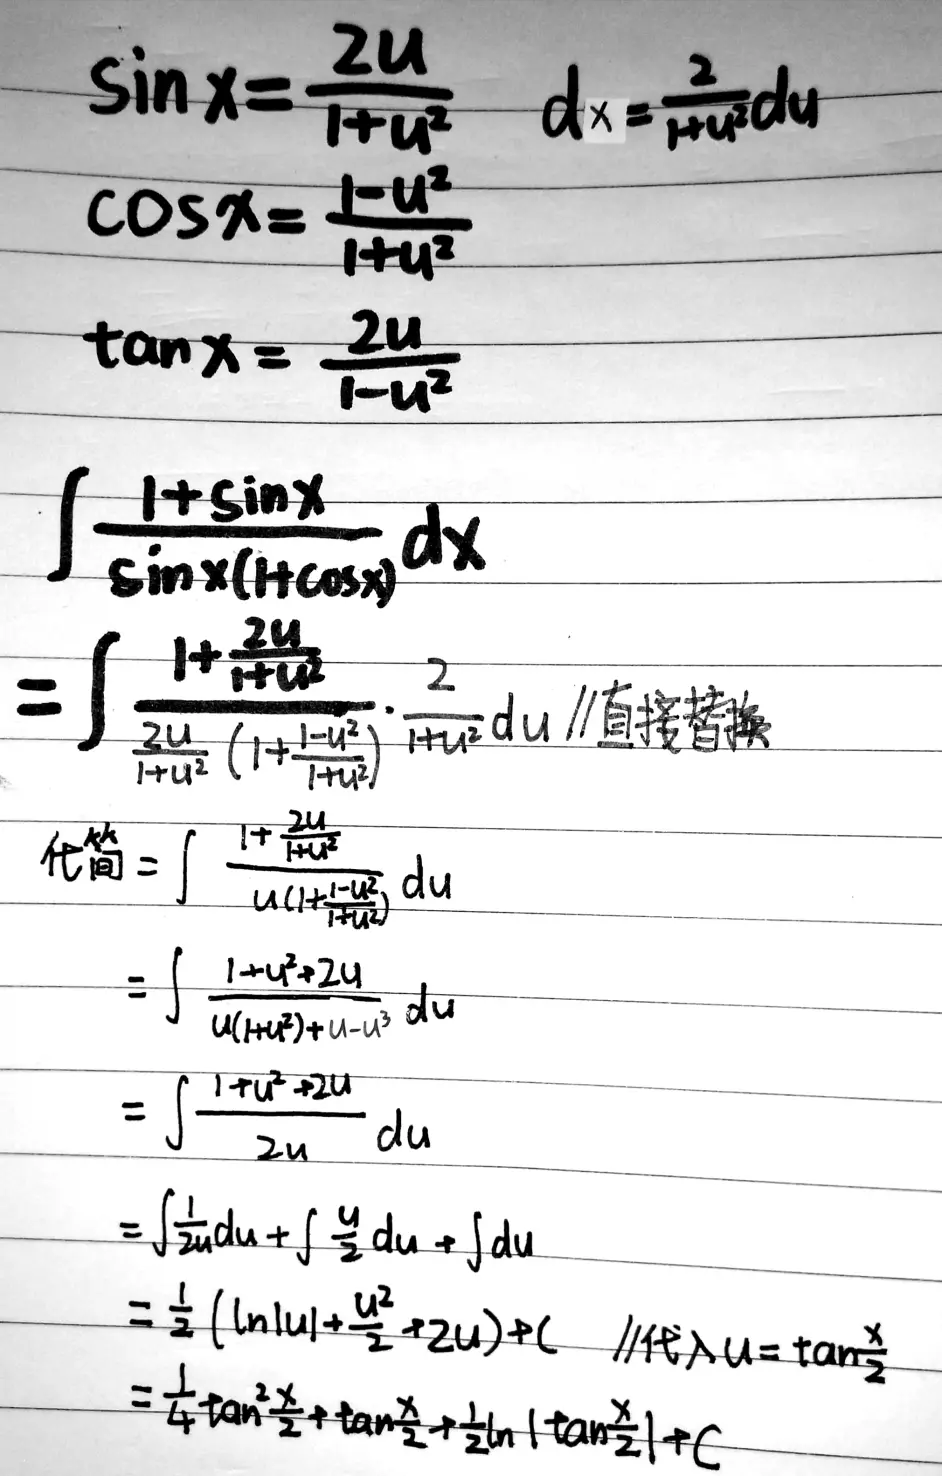 sin x = 2u/(1+u²)   dx = 2/(1+u²) du
cos x = (1-u²)/(1+u²)
tan x = 2u/(1-u²)
∫ (1+sin x)/(sin x(1+cos x)) dx
= ∫ (1+2u/(1+u²))/(2u/(1+u²) (1+(1-u²)/(1+u²))) · 2/(1+u²) du //直接替换
化简 = ∫ (1+2u/(1+u²))/(u(1+(1-u²)/(1+u²))) du
= ∫ (1+u²+2u)/(u(1+u²)+u-u³) du
= ∫ (1+u²+2u)/(2u) du
= ∫ 1/(2u) du + ∫ u/2 du + ∫ du
= 1/2 (ln|u| + u²/2 + 2u) + C   //代入 u = tan x/2
= 1/4 tan² x/2 + tan x/2 + 1/2 ln |tan x/2| + C